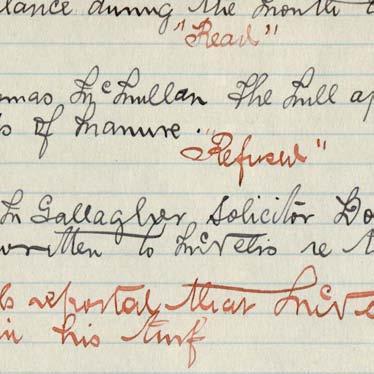 lance during the month
"Read"
omas McMullan The Mull ap
s of manure.
"Refused"
Gallagher, Solicitor Do
written to McVelis re t
s reported that McVe
in his turf